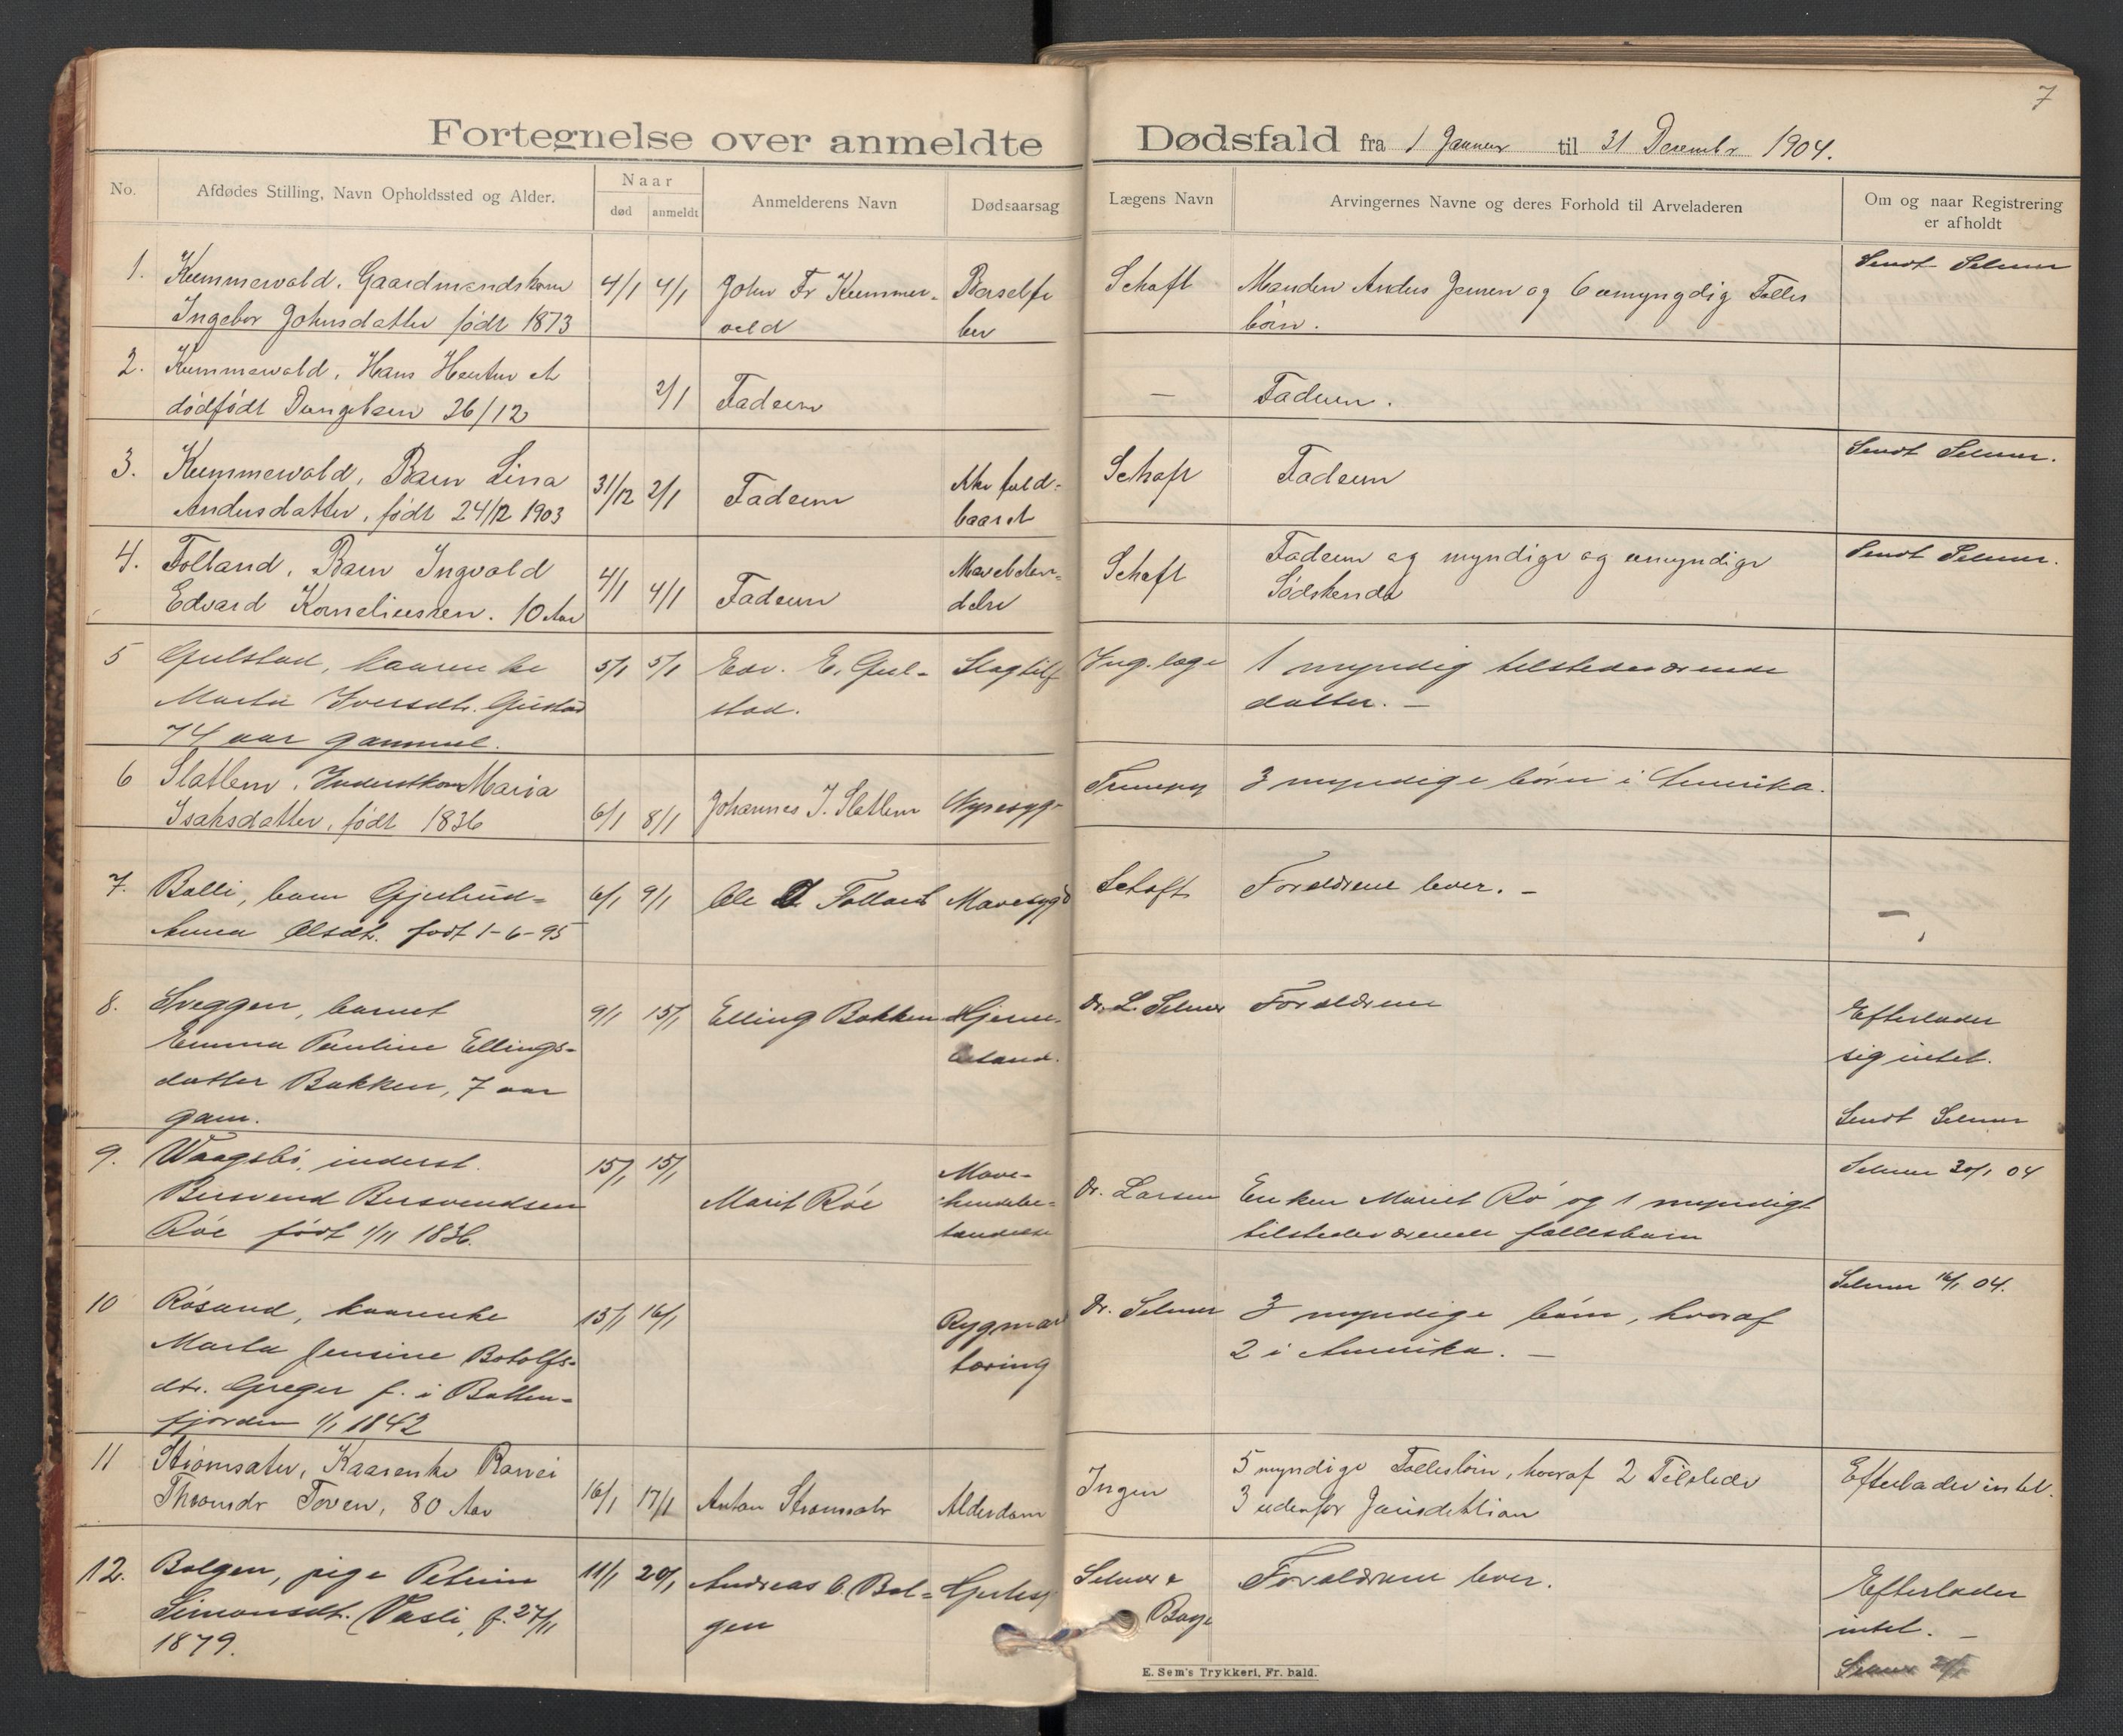 7
Fortegnelse over anmeldte Dødsfald fra 1 Januar til 31 December 1904.
No.
Afdødes Stilling, Navn Opholdssted og Alder.
Naar
død anmeldt
Anmelderens Navn
Dødsaarsag
Lægens Navn
Arvingernes Navne og deres Forhold til Arveladeren
Om og naar Registrering
er afholdt
1. Kummervold, Gaardmandskone
Ingebor Johnsdatter født 1873
4/1 4/1
John Fr Kummer-
vold
Barselfe
ber
Schaft
Manden Anders Jensen og 6 umyngdig Fælles
børn.
Sendt Selmer
2. Kummervold, Hans Hustru et
dødfødt Drengebarn 26/12
2/1
Faderen
—
Faderen.
3. Kummervold, Barn Lina
Andersdatter, født 24/12 1903
31/12 2/1
Faderen
Ikke fuld-
baaret
Schaft
Faderen
Sendt Selmer.
4. Folland, Barn Ingvald
Edvard Korneliussen. 10 Aar
4/1 4/1
Faderen
Schaft
Faderen og myndige og umyndige
Sødskende
Sendt Selmer.
5 Gulstad, kaarenke
Marta Iversdtr. Gulstad
74 aar gammel.
5/1 5/1
Edv. E. Gul-
stad.
Slagtilf
Ing. læge
1 myndig tilstedeværende
datter. —
6 Slatlem, Inderstkone Maria
Isaksdatter, født 1836
6/1 8/1
Johannes J. Slatlem
Nyresyg-
3 myndige børn i Amerika.
7. Bolli, barn Gjertrud-
Anna Olsdt. født 1-6-95
6/1 9/1
Ole Folland
Mavesygd
Schaft
Forældrene lever. –
—
8. Sveggen, barnet
Emma Pauline Ellings-
datter Bakken, 7 aar
gam.
9/1 15/1
Elling Bakken
Hjerne-
Dr. L. Selmer
Forældrene
Efterlader
sig intet.
Sendt Selmer
9. Waagsbø, inderst.
Bersvend Bersvendsen
Röe født 1/11 1836.
15/1 15/1
Marit Röe
Mave-
hindebe-
tændelse
Dr. Larsen
Enken Marit Rö og 1 myndigt
tilstedeværende fællesbarn
Selmer 20/1 04
10 Røsand, kaarenke
Marta Jensine Botolfs-
dtr. Greger f. i Batten-
fjorden 1/1 1842
15/1 16/1
Rygmarv
tæring
Dr. Selmer
3 myndige børn, hvoraf
2 i Amerika. —
Selmer 16/1 04.
11 Strømsæter, Kaarenke Ranvei
Thronsdr Toven, 80 Aar
16/1 17/1
Anton Strømsætr
Alderdom
Ingen
5 myndige Fællesbørn, hvoraf 2 Tilstede
3 udenfor Jurisdiktion
Efterlader intet.
12. Bolgen, pige Petrine
Simonsdt. Vasli, f. 27/11
1879.
11/1 20/1
Andreas O. Bol-
gen
Hjertesy
Selmer &
Forældrene lever.
Efterlader
intet. —
E. Sem's Trykkeri, Fr. hald.